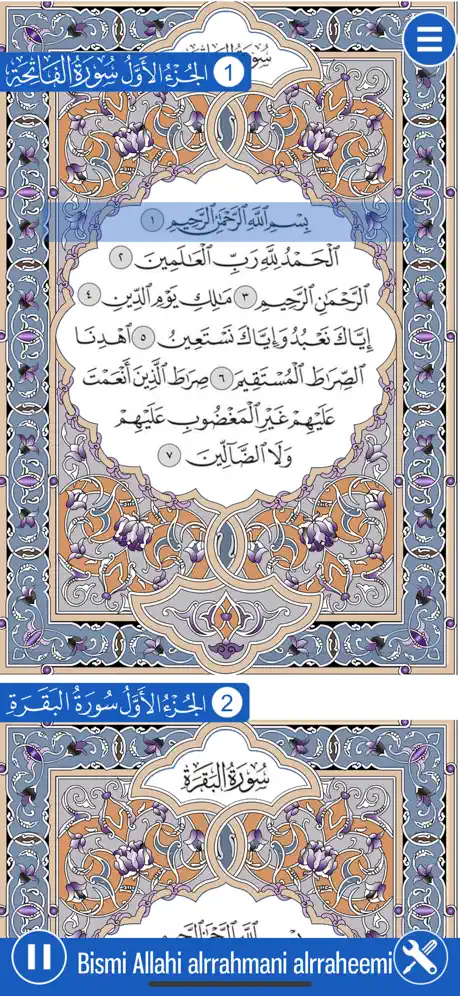 سُورَةُ
الجُزْءُ الأَوَّلُ سُورَةُ الفَاتِحَةِ 1
بِسْمِ ٱللَّهِ ٱلرَّحْمَٰنِ ٱلرَّحِيمِ ١
ٱلْحَمْدُ لِلَّهِ رَبِّ ٱلْعَٰلَمِينَ ٢
ٱلرَّحْمَٰنِ ٱلرَّحِيمِ ٣ مَٰلِكِ يَوْمِ ٱلدِّينِ ٤
إِيَّاكَ نَعْبُدُ وَإِيَّاكَ نَسْتَعِينُ ٥ ٱهْدِنَا
ٱلصِّرَٰطَ ٱلْمُسْتَقِيمَ ٦ صِرَٰطَ ٱلَّذِينَ أَنْعَمْتَ
عَلَيْهِمْ غَيْرِ ٱلْمَغْضُوبِ عَلَيْهِمْ
وَلَا ٱلضَّآلِّينَ ٧
الجُزْءُ الأَوَّلُ سُورَةُ البَقَرَةِ 2
سُورَةُ البَقَرَةِ
بِسْمِ ٱللَّهِ ٱلرَّحْمَٰنِ ٱلرَّحِيمِ
Bismi Allahi alrrahmani alrraheemi